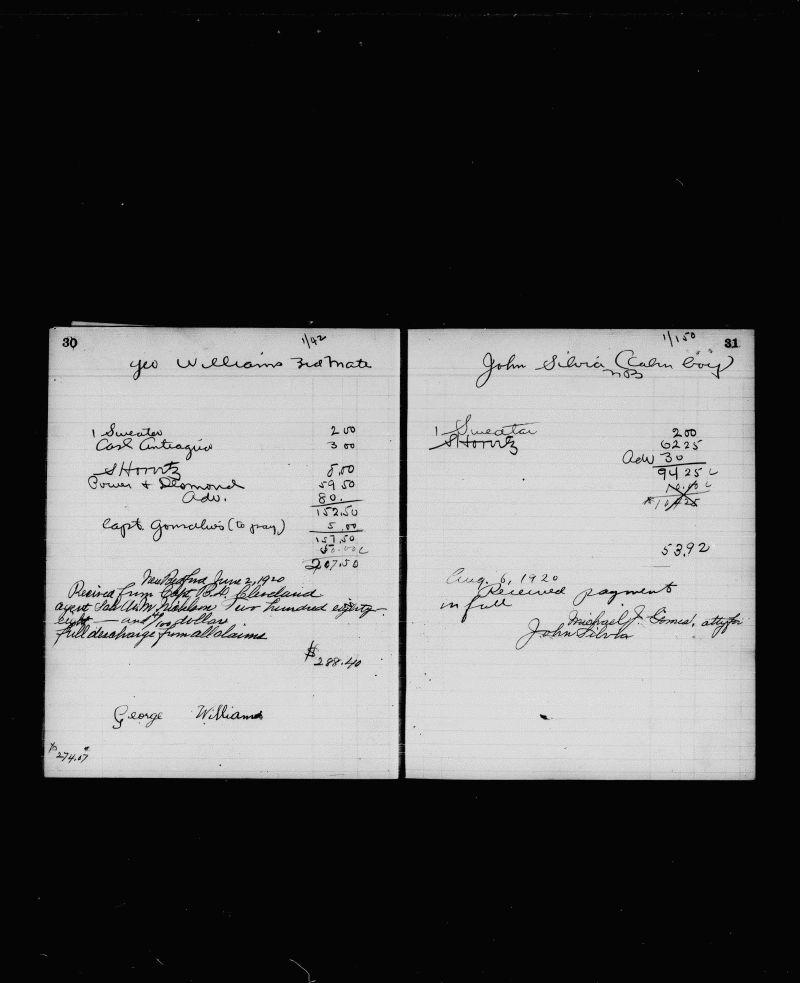 30
1/92
Geo Williams 3rd Mate
1 Sweater 2 00
Cash Antragua 3 00
S Horvitz 8.00
Power & Desmond 59 50
Adv. 80.
152.50
Capt. Gonsalves (to pay) 5.00
157.50
50.00
207.50
New Bedford June 2, 1920
Received from Capt. B.D. Cleveland
agent Sch. Wm. Two hundred eighty
eight — and 40/100 dollars
full descharge from all claims
$288.40
George Williams
274.07
31
1/150
John Silvia (Cabin boy)
NB
1 Sweatar 2 00
S Horvitz 62 25
Adv 30
94 25
10.00
104 25
53.92
Aug. 6, 1920
Received payment
in full
Michael J. Gomes, atty for
John Silvia